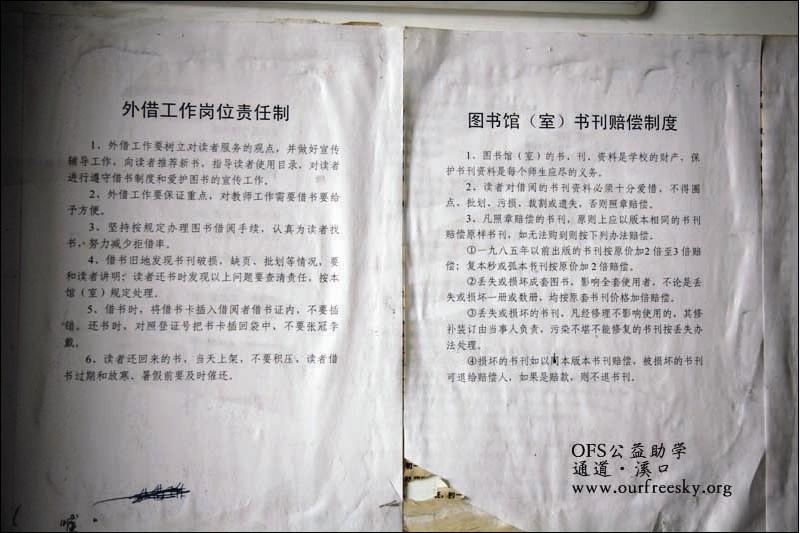 外借工作岗位责任制
1、外借工作要树立对读者服务的观点，并做好宣传
辅导工作，向读者推荐新书，指导读者使用目录，对读者
进行遵守借书制度和爱护图书的宣传工作。
2、外借工作要保证重点，对教师工作需要借书要给
予方便。
3、坚持按规定办理图书借阅手续，认真为读者找
书，努力减少拒借率。
4、借书旧地发现书刊破损，缺页、批划等情况，要
和读者讲明；读者还书时发现以上问题要查清责任，按本
馆（室）规定处理。
5、借书时，将借书卡插入借阅者借书证内，不要插
错。还书时，对照登证号把书卡插回袋中，不要张冠李
戴。
6、读者还回来的书，当天上架，不要积压，读者借
书过期和放寒、暑假前要及时催还。
图书馆（室）书刊赔偿制度
1、图书馆（室）的书，刊，资料是学校的财产，保
护书刊资料是每个师生应尽的义务。
2、读者对借阅的书刊资料必须十分爱惜，不得圈
点，批划，污损，裁割或遗失，否则照章赔偿。
3、凡照章赔偿的书刊，原则上应以版本相同的书刊
赔偿原样书刊，如无法购到则按下列办法赔偿。
①一九八五年以前出版的书刊按原价加2倍至3倍赔
偿；复本秒或孤本书刊按原价加2倍赔偿。
②丢失或损坏成套图书，影响全套使用者，不论是丢
失或损坏一册或数册，均按原套书刊价格加倍赔偿。
③丢失或损坏的书刊，凡经修理不影响使用的，其修
补装订由当事人负责，污染不堪不能修复的书刊按丢失办
法处理。
④损坏的书刊如以同本版本书刊赔偿，被损坏的书刊
可退给赔偿人，如果是赔款，则不退书刊。
OFS公益助学
通道·溪口
www.ourfreesky.org